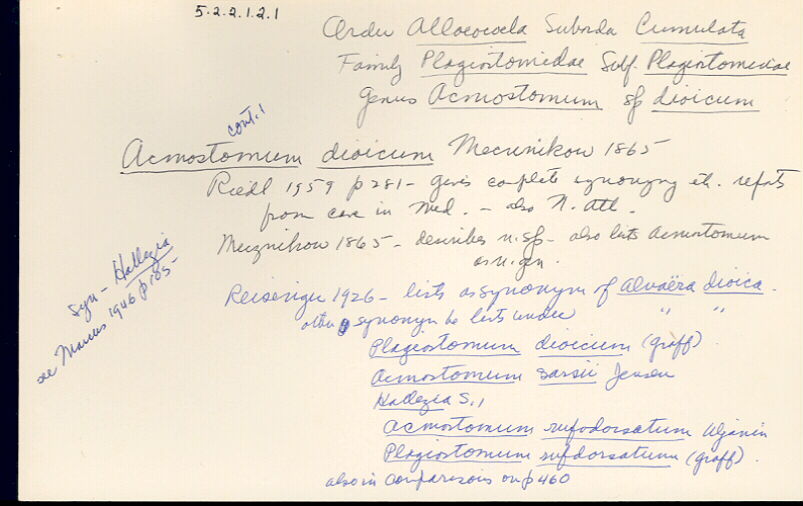 5.2.2.1.2.1
Order Alloeocoela Suborder Cumulata
Family Plagiostomidae Subf. Plagiostominae
Genus Acmostomum sp dioicum
cont. 1
Acmostomum dioicum Mecznikow 1865
Riedl 1959 p 281 - gives complete synonymy etc. repts
from cave in Med. - also N. Atl.
Mecznikow 1865 - describes n. sp - also lists Acmostomum
as n. gen.
Syn - Hallezia
see Marcus 1946 p 185-
Reisinger 1926 - lists as synonym of Alvaëra dioica.
other synonyms he lists under " "
Plagiostomum dioicum (Graff)
Acmostomum sarsii Jensen
Hallezia S.,
Acmostomum rufodorsatum Uljanin
Plagiostomum rufdorsatum (Graff).
also in comparisons on p 460